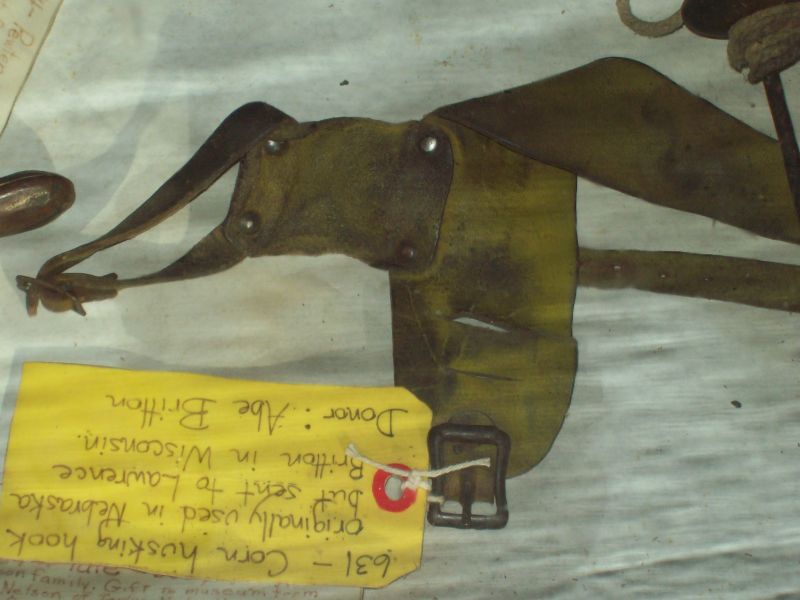 631 - Corn husking hook
originally used in Nebraska
but sent to Lawrence
Britton in Wisconsin.
Donor: Abe Britton
family. Gift to museum from
Nelson
Pewter